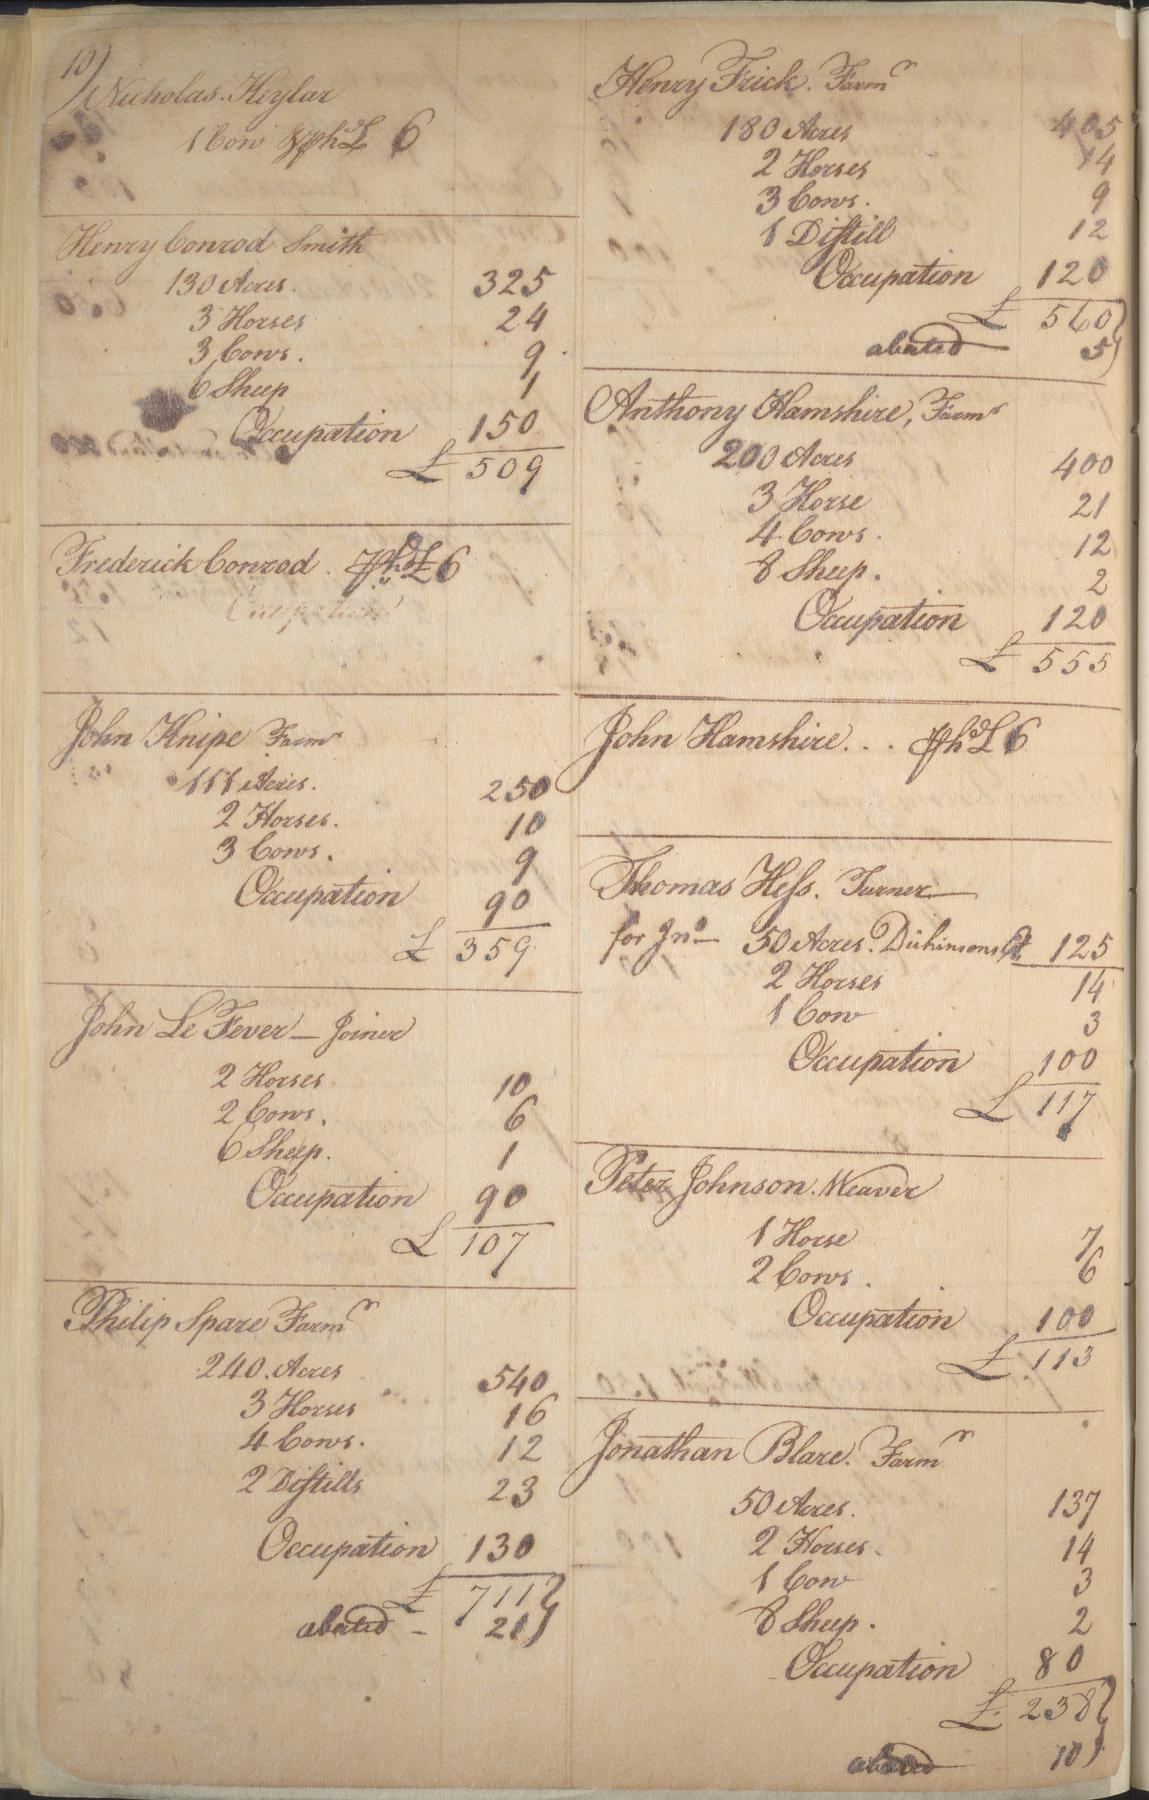 10)
Nicholas Keylar
1 Cow p hd £ 6
Henry Conrod Smith
130 Acres. 325
3 Horses 24
3 Cows. 9
6 Sheep 1
Occupation 150
£ 509
Frederick Conrod. p hd £ 6
Occupation
John Knipe Farmr
111 Acres. 250
2 Horses. 10
3 Cows. 9
Occupation 90
£ 359
John Le Fever — Joiner
2 Horses 10
2 Cows. 6
6 Sheep. 1
Occupation 90
£ 107
Philip Spare Farmr
240 Acres 540
3 Horses 16
4 Cows. 12
2 Distills 23
Occupation 130
£ 711}
abated - 21)
Henry Frick. Farmr
180 Acres 405
2 Horses 14
3 Cows. 9
1 Distill 12
Occupation 120
£ 560}
abated 5)
Anthony Hamshire, Farmr
200 Acres 400
3 Horse 21
4 Cows. 12
8 Sheep. 2
Occupation 120
£ 555
John Hamshire... p hd £ 6
Thomas Hess. Turner
for Jno 50 Acres. Dickinsons Et 125
2 Horses 14
1 Cow 3
Occupation 100
£ 117
Peter Johnson. Weaver
1 Horse 7
2 Cows. 6
Occupation 100
£ 113
Jonathan Blare. Farmr
50 Acres. 137
2 Horses. 14
1 Cow 3
8 Sheep. 2
Occupation 80
£ 238}
abated 10)